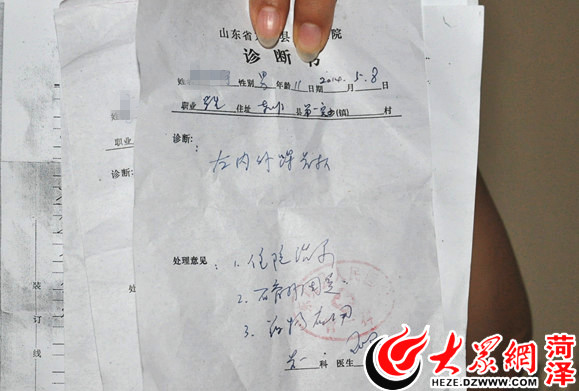 山东省 县 院
诊断书
姓 性别 男 年龄 11 日期 2014. 5. 8
年 月 日
职业 学生 住址 县 第一实小 (镇) 村
诊断:
左内外踝骨折
处理意见: 1. 住院治疗
2. 石膏外固定
3. 药物应用
科 医生
职业
诊断:
处
装订线
大众網 菏泽
HEZE.DZWWW.COM